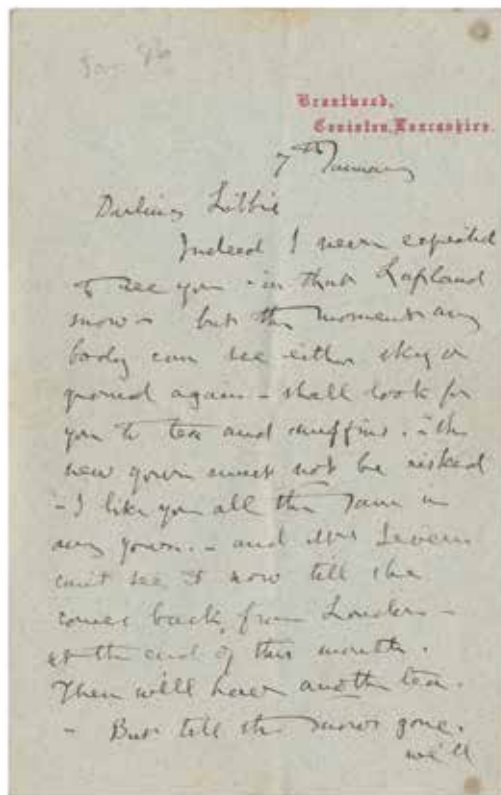 Jan 86
Brantwood,
Coniston, Lancashire.
7th January
Darling
Indeed I never expected
to see you - in that Lapland
snow - but the moment any
body can see either sky or
ground again - shall look for
you to tea and muffins. - the
new gown must not be risked
- I like you all the same in
any gown. - and Mrs Severn
can't see it now till she
comes back from London -
at the end of this month.
Then we'll have another tea.
- But till the snow's gone.
we'll